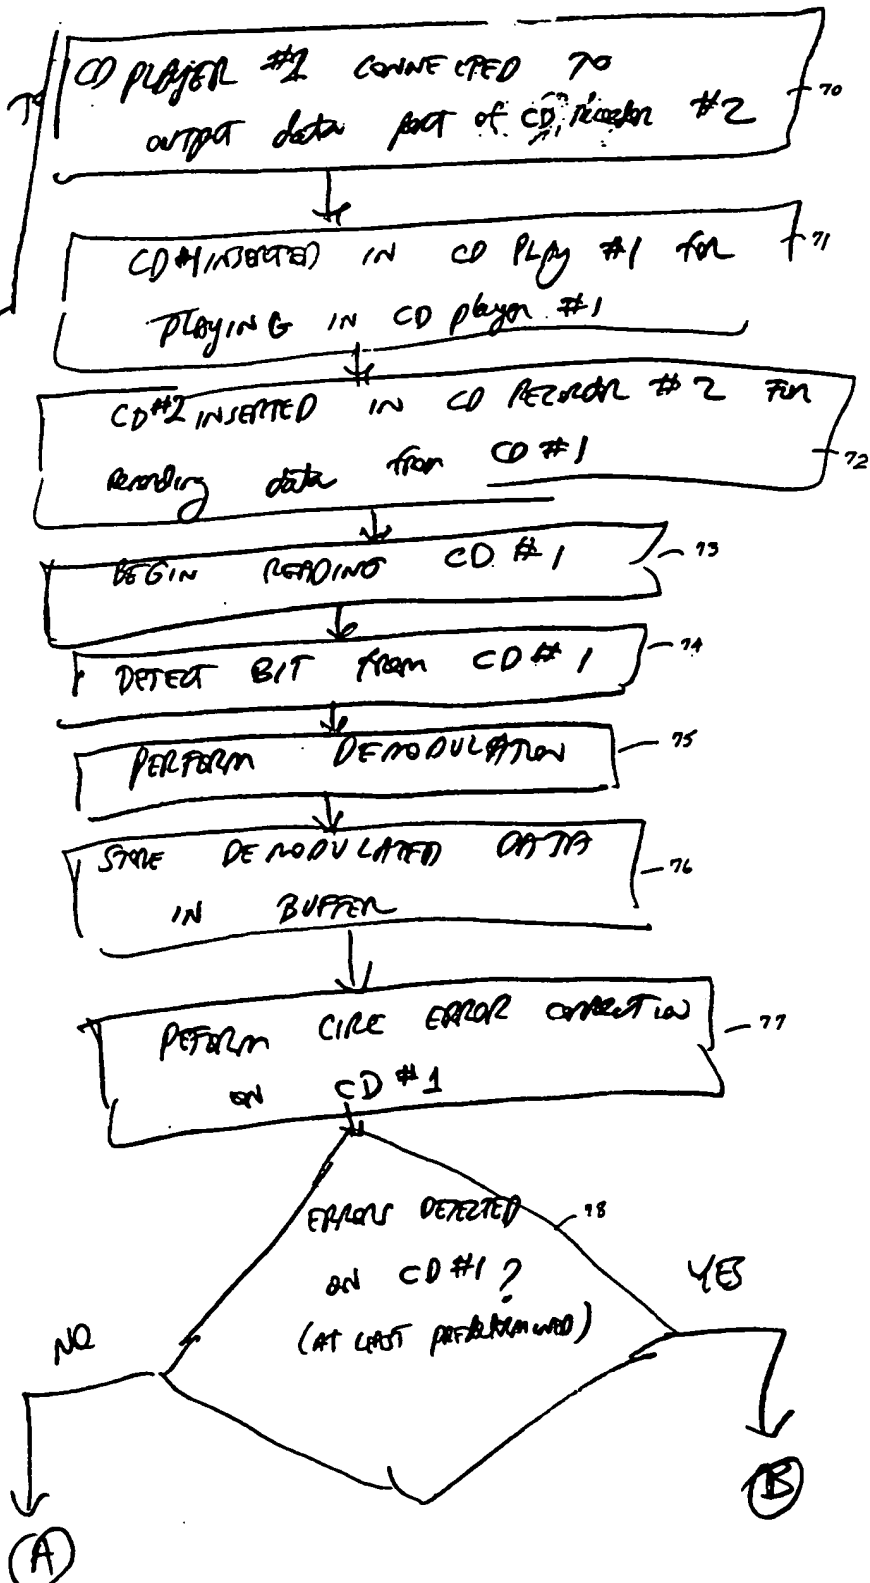 CD PLAYER #1 CONNECTED TO
output data port of CD recorder #2
70
CD #1 INSERTED IN CD PLAy #1 for
71
PLAYING IN CD player #1
CD #2 INSERTED IN CD RECORDR #2 FOR
Recording data from CD #1
72
BEGIN READING CD #1
73
DETECT BIT from CD # 1
74
PERFORM DEMODULATION
75
STORE DEMODULATED DATA
76
IN BUFFER
PEFORM CIRC ERROR CORRECTION
77
ON CD #1
ERRORS DETECTED
78
ON CD #1 ?
(AT LEAST
YES
NO
B
A